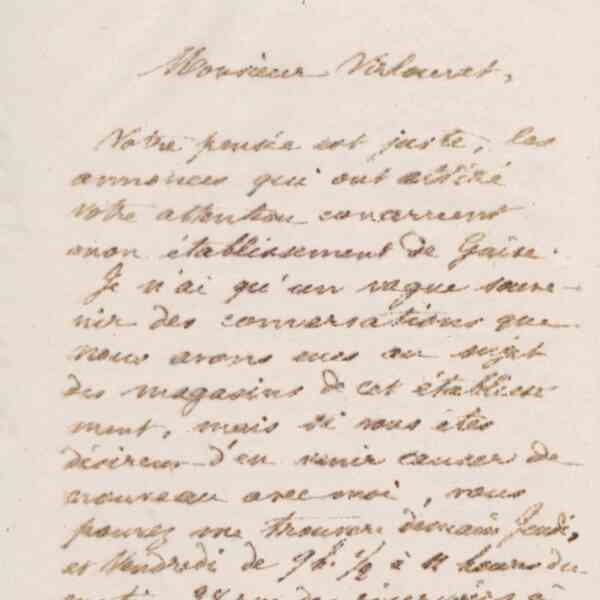 Monsieur Virlouvet,
Votre pensée est juste, les
annonces qui ont attiré
votre attention concernent
mon établissement de Guise.
Je n'ai qu'un vague souve-
nir des conversations que
nous avons eues au sujet
des magasins de cet établisse
ment, mais si vous êtes
désireux d'en venir causer de
nouveau avec moi, vous
pourez me trouver demain Jeudi,
et Vendredi de 9h. 1/2 à 11 heures du
28 rue des